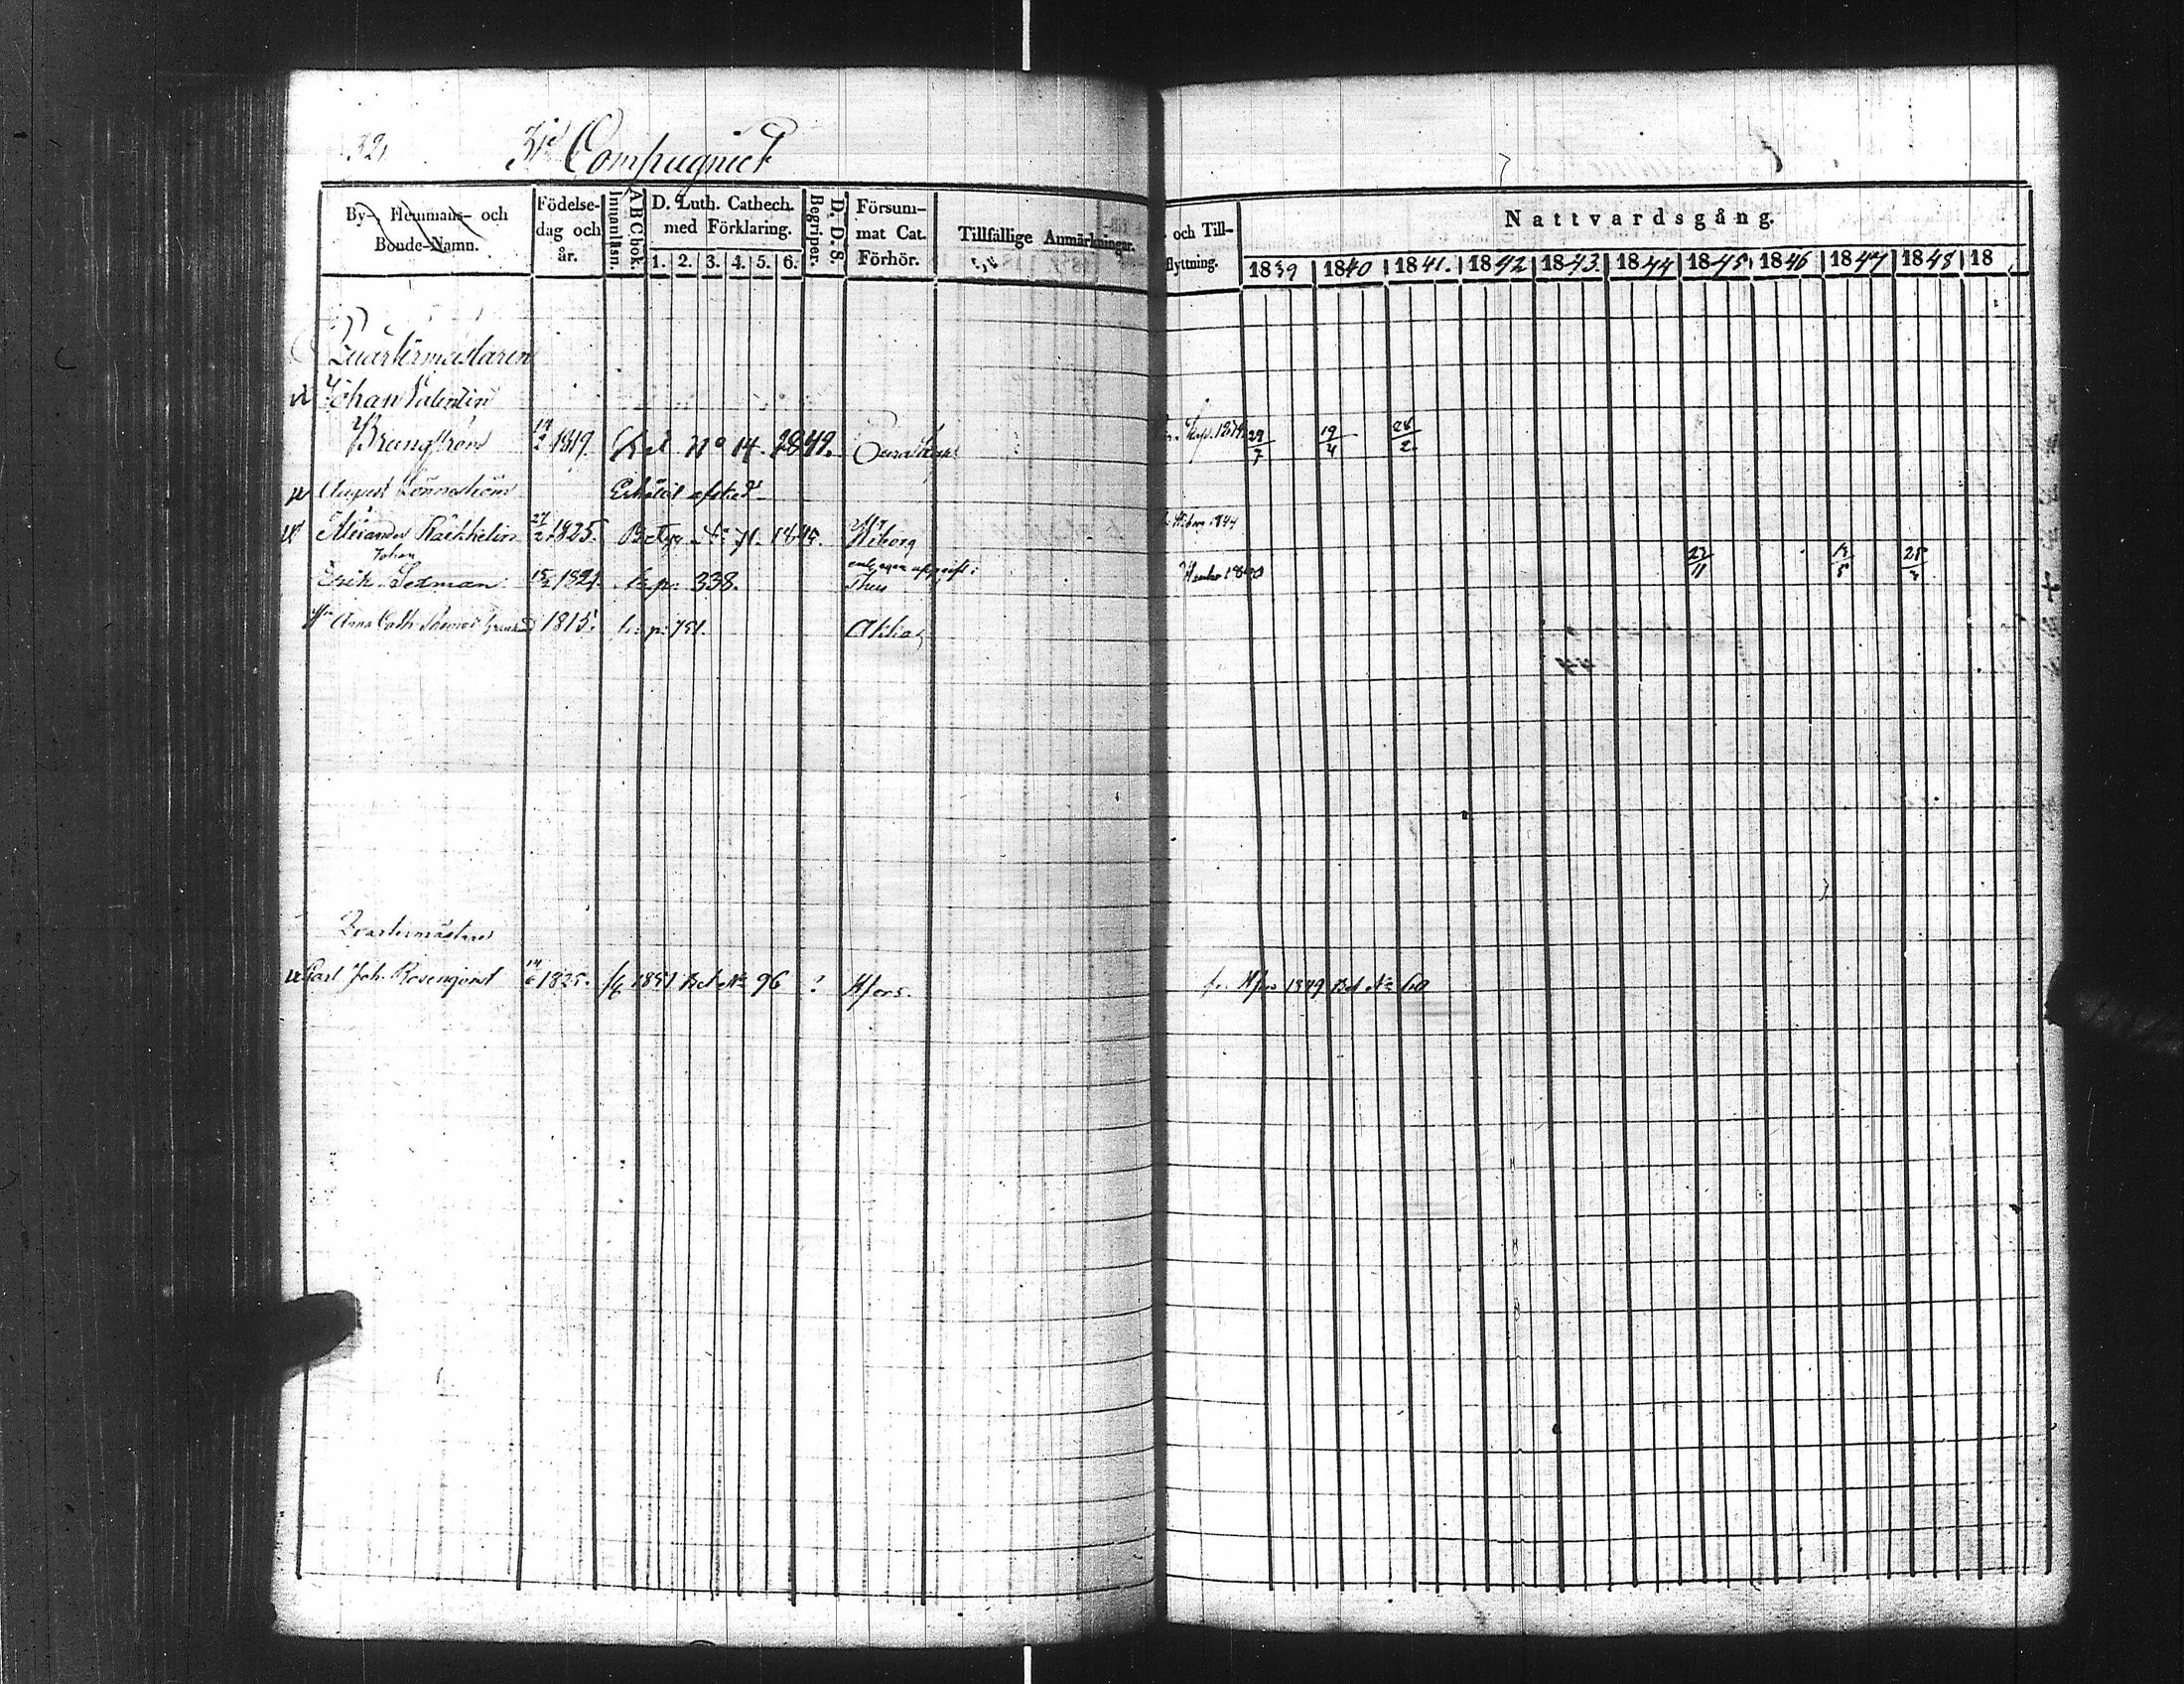 32,
3je Compagniet
By-, Hemmans- och
Bonde-Namn.
Födelse-
dag och
år.
Innanläsn.
A B C bok.
D. Luth. Cathech.
med Förklaring.
1. 2. 3. 4. 5. 6.
Begriper.
D. D. S.
Försum-
mat Cat.
Förhör.
Tillfällige Anmärkningar.
och Till-
flyttning.
Nattvardsgång.
1839 1840 1841. 1842 1843. 1844 1845 1846 1847 1848 18
Quartermästaren
Johan Valentin
Brangström 1819. No 14. 1841. 29/7 19/4 28/2
August Lönnström Erhållit afsked
Alexander Raikkelin 27/2 1825. Betyg No 71. 1845. Wiborg Wiborg 1844
Johan
Erik Sedman 15/2 1821. L. p. 338. enl. egen uppgift: Thus 23/11 25/3
Hu Anna Cath. 1815. L. p. 751.
Quartermästaren
Carl Joh. Rosenqvist 14/6 1825. 1851 Bet No 96 ? Hfors. fr. Hfors 1849 Bet No 60